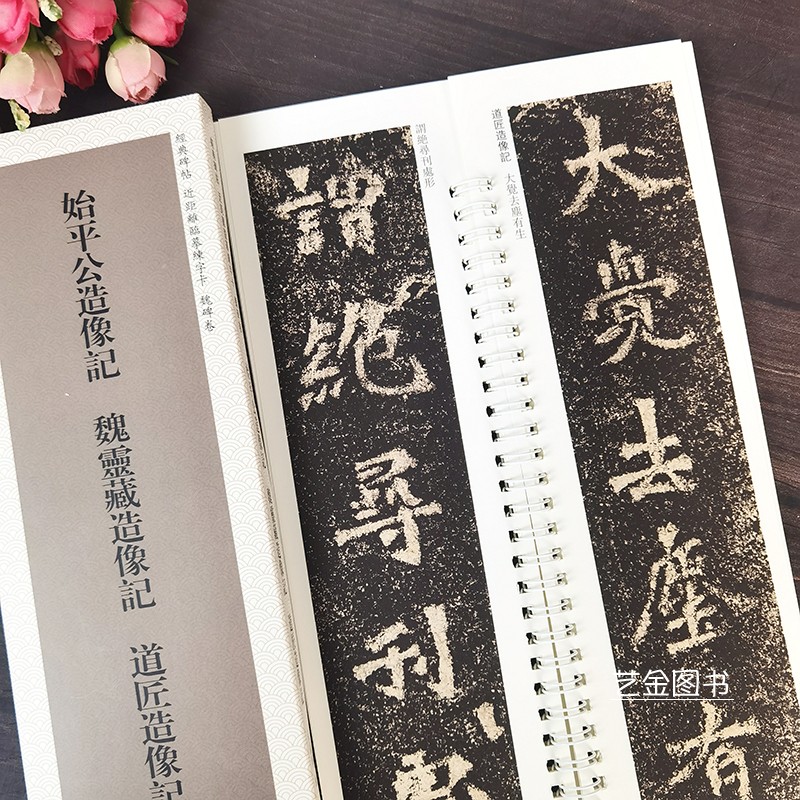 始平公造像記
魏靈藏造像記
道匠造像記
經典碑帖 近距離臨摹練字卡 魏碑卷
謂絶尋刊處
謂絶尋刊處形
道匠造像記 大覺去塵有生
大覺去塵有
艺金图书